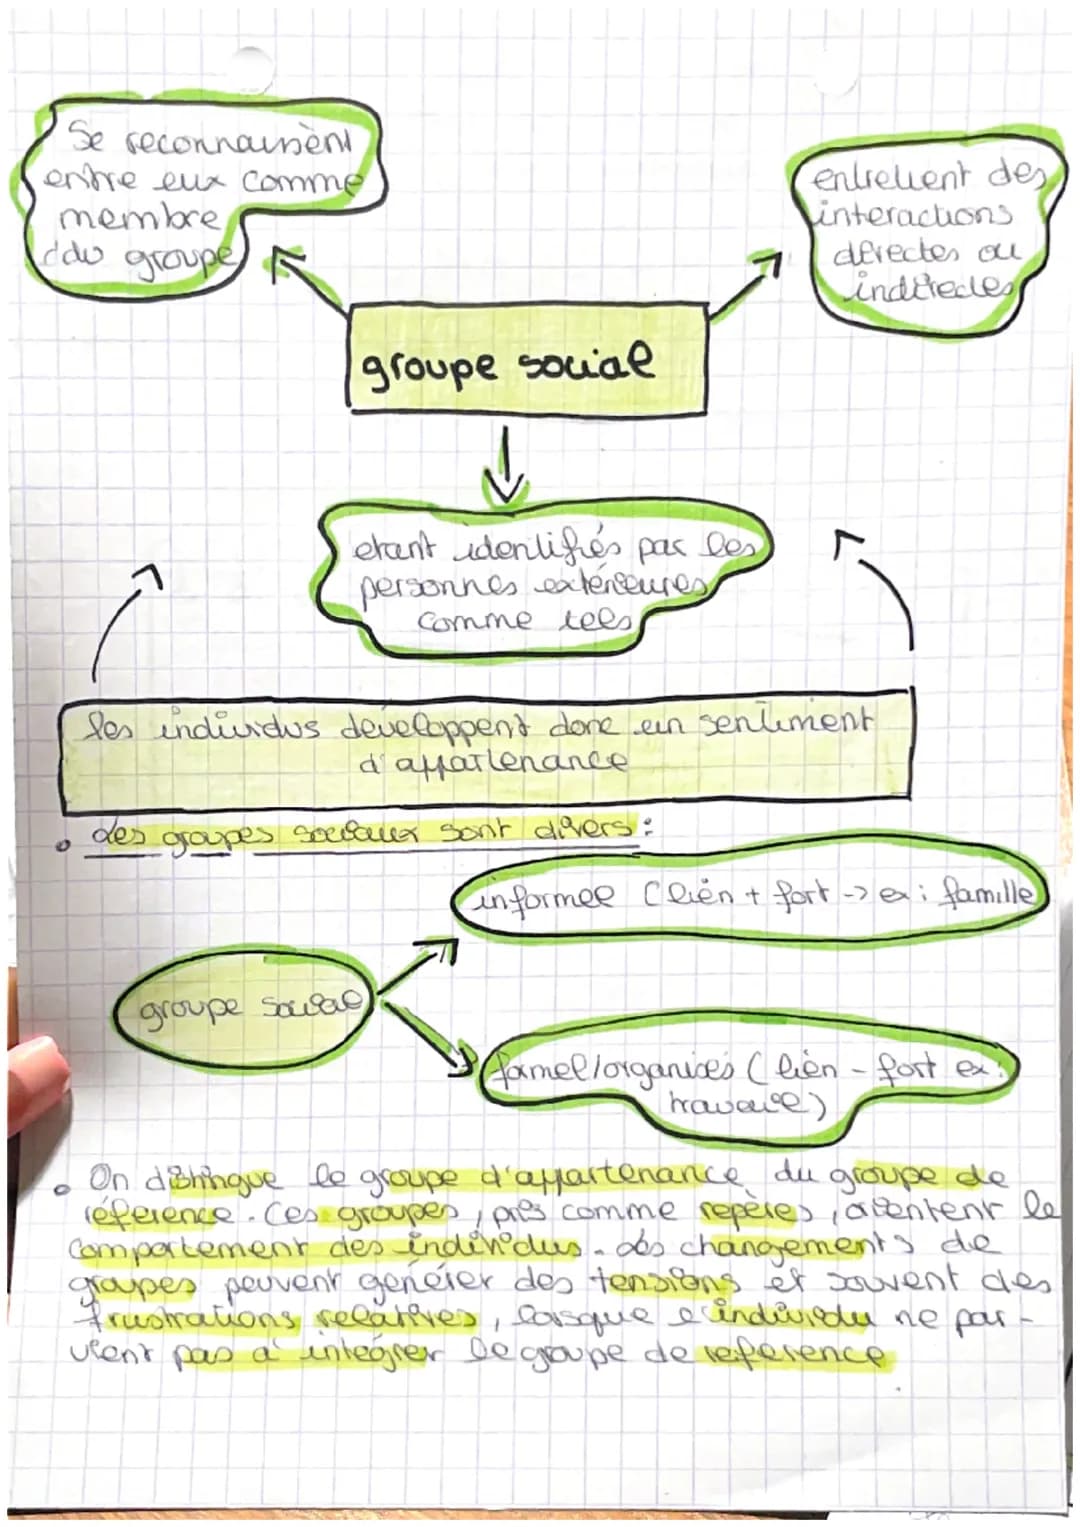 Se reconnaissent
entre eux comme
membre
du groupe
entretient des
interactions
directes ou
indirectes
groupe social
etant identifiés par les
personnes extérieures
comme tels
les individus developpent donc un sentiment
d'appartenance
• des groupes sociaux sont divers :
informel (lien + fort -> ex : famille
groupe social
formel/organisés (lien - fort ex :
travail)
• On distingue le groupe d'appartenance du groupe de
réference. Ces groupes, pris comme repères, orientent le
comportement des individus. des changements de
groupes peuvent generer des tensions et souvent des
frustrations relatives, lorsque l'individu ne par-
vient pas a intégrer le groupe de reference